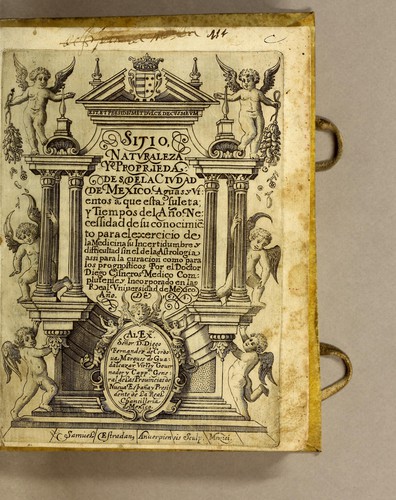 114
C
SITIO,
NATVRALEZA
Y PROPRIEDA
DES, DE LA CIVDAD
DE MEXICO. Aguas y Vi
entos a que esta suleta;
y Tiempos del Año. Ne
cessidad de su conocimie
to para el exercicio de
la Medicina su Incertidumbre y
difficultad sin el de la Astrologia,
assi para la curacion como para
los prognosticos Por el Doctor
Diego Cisneros, Medico Com
plutense, y Incorporado en la
Real Vniuersidad de Mexico
Año. DE
AL Ex
Señor D. Diego
Fernandez de Cordo
ua, Marques de Gua
dalcazar Virey Gouer
nador y Capp. Gene
ral de las Prouincias de
Nueua España y Presi
dente de La Real
Chancilleria
de Mexico.
Samuel Estradan, Antuerpiensis Sculp.